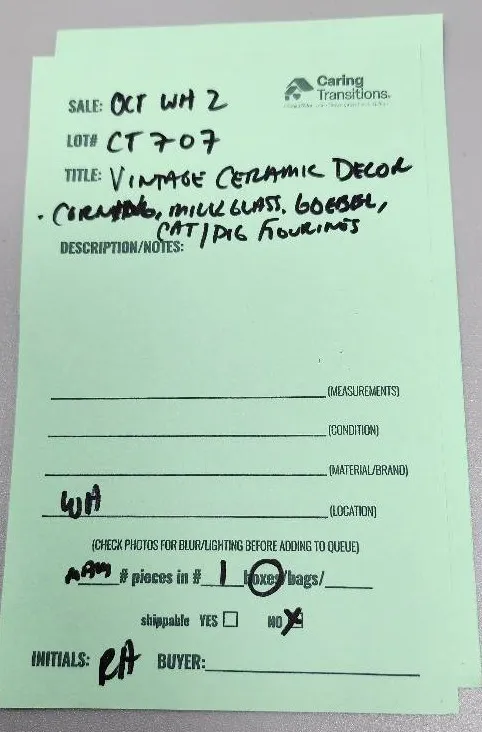 Caring
Transitions.
SALE: OCT WH 2
LOT# CT 707
TITLE: VINTAGE CERAMIC DECOR
· CORNING, MILK GLASS. GOEBEL,
CAT/PIG FIGURINES
DESCRIPTION/NOTES:
(MEASUREMENTS)
(CONDITION)
(MATERIAL/BRAND)
WH (LOCATION)
(CHECK PHOTOS FOR BLUR/LIGHTING BEFORE ADDING TO QUEUE)
# pieces in # 1 boxes/bags/
shippable YES NO X
INITIALS: RA BUYER: